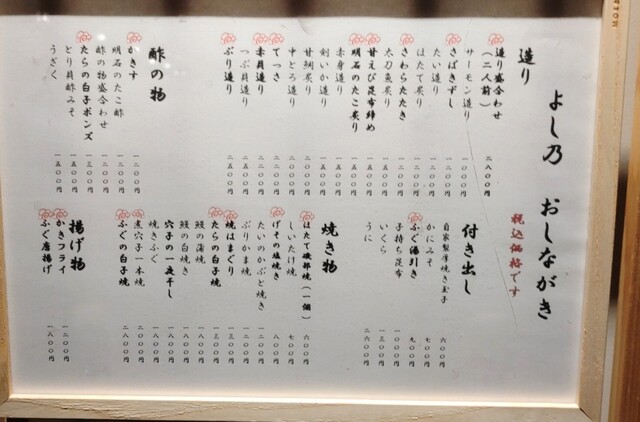 よし乃 おしながき
税込価格です
造り
造り盛合わせ
（二人前） 二八〇〇円
サーモン造り 一〇〇〇円
さばきずし 一〇〇〇円
たい造り
ほたて炙り
さわらたたき
太刀魚炙り
甘えび昆布締め
明石のたこ炙り
赤身造り
剣いか造り
甘鯛炙り
中とろ造り
てっさ
赤貝造り
つぶ貝造り
ぶり造り 二五〇〇円
酢の物
かきす 一二〇〇円
明石のたこ酢 一二〇〇円
酢の物盛合わせ 一二〇〇円
たらの白子ポンズ 一三〇〇円
とり貝酢みそ 一五〇〇円
うざく 一五〇〇円
付き出し
自家製厚焼き玉子 六〇〇円
かにみそ 七〇〇円
ふぐ湯引き 九〇〇円
子持ち昆布 一〇〇〇円
いくら 一三〇〇円
うに 二六〇〇円
焼き物
ほたて磯部焼（一個） 六〇〇円
しいたけ焼 七〇〇円
げその塩焼き 八〇〇円
たいのかぶと焼き 一二〇〇円
ぶりかま焼 一二〇〇円
焼はまぐり 一三〇〇円
たらの白子焼 一三〇〇円
鰻の蒲焼 一八〇〇円
鰻の白焼き 一八〇〇円
穴子の一夜干し 一八〇〇円
焼きふぐ 一八〇〇円
煮穴子一本焼 二〇〇〇円
ふぐの白子焼 二八〇〇円
揚げ物
かきフライ 一二〇〇円
ふぐ唐揚げ 一八〇〇円